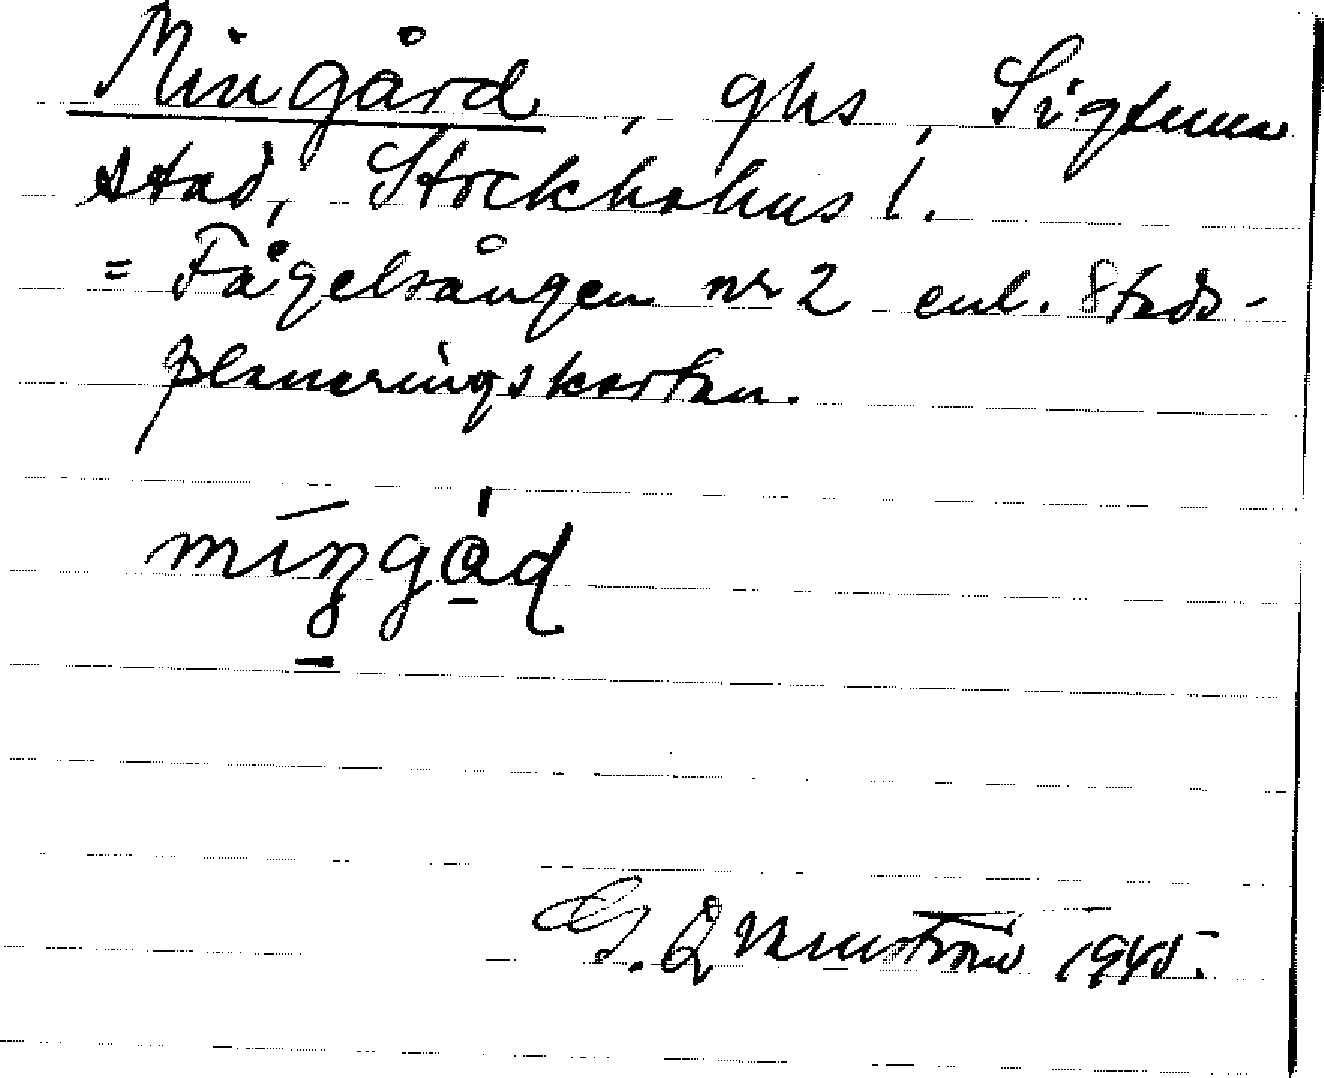 Mingård, ghs, Sigtuna
stad, Stockholms l.
= Fågelsången nr 2 enl. Stads-
planeringskartan.
G. Qvarnström 1945.